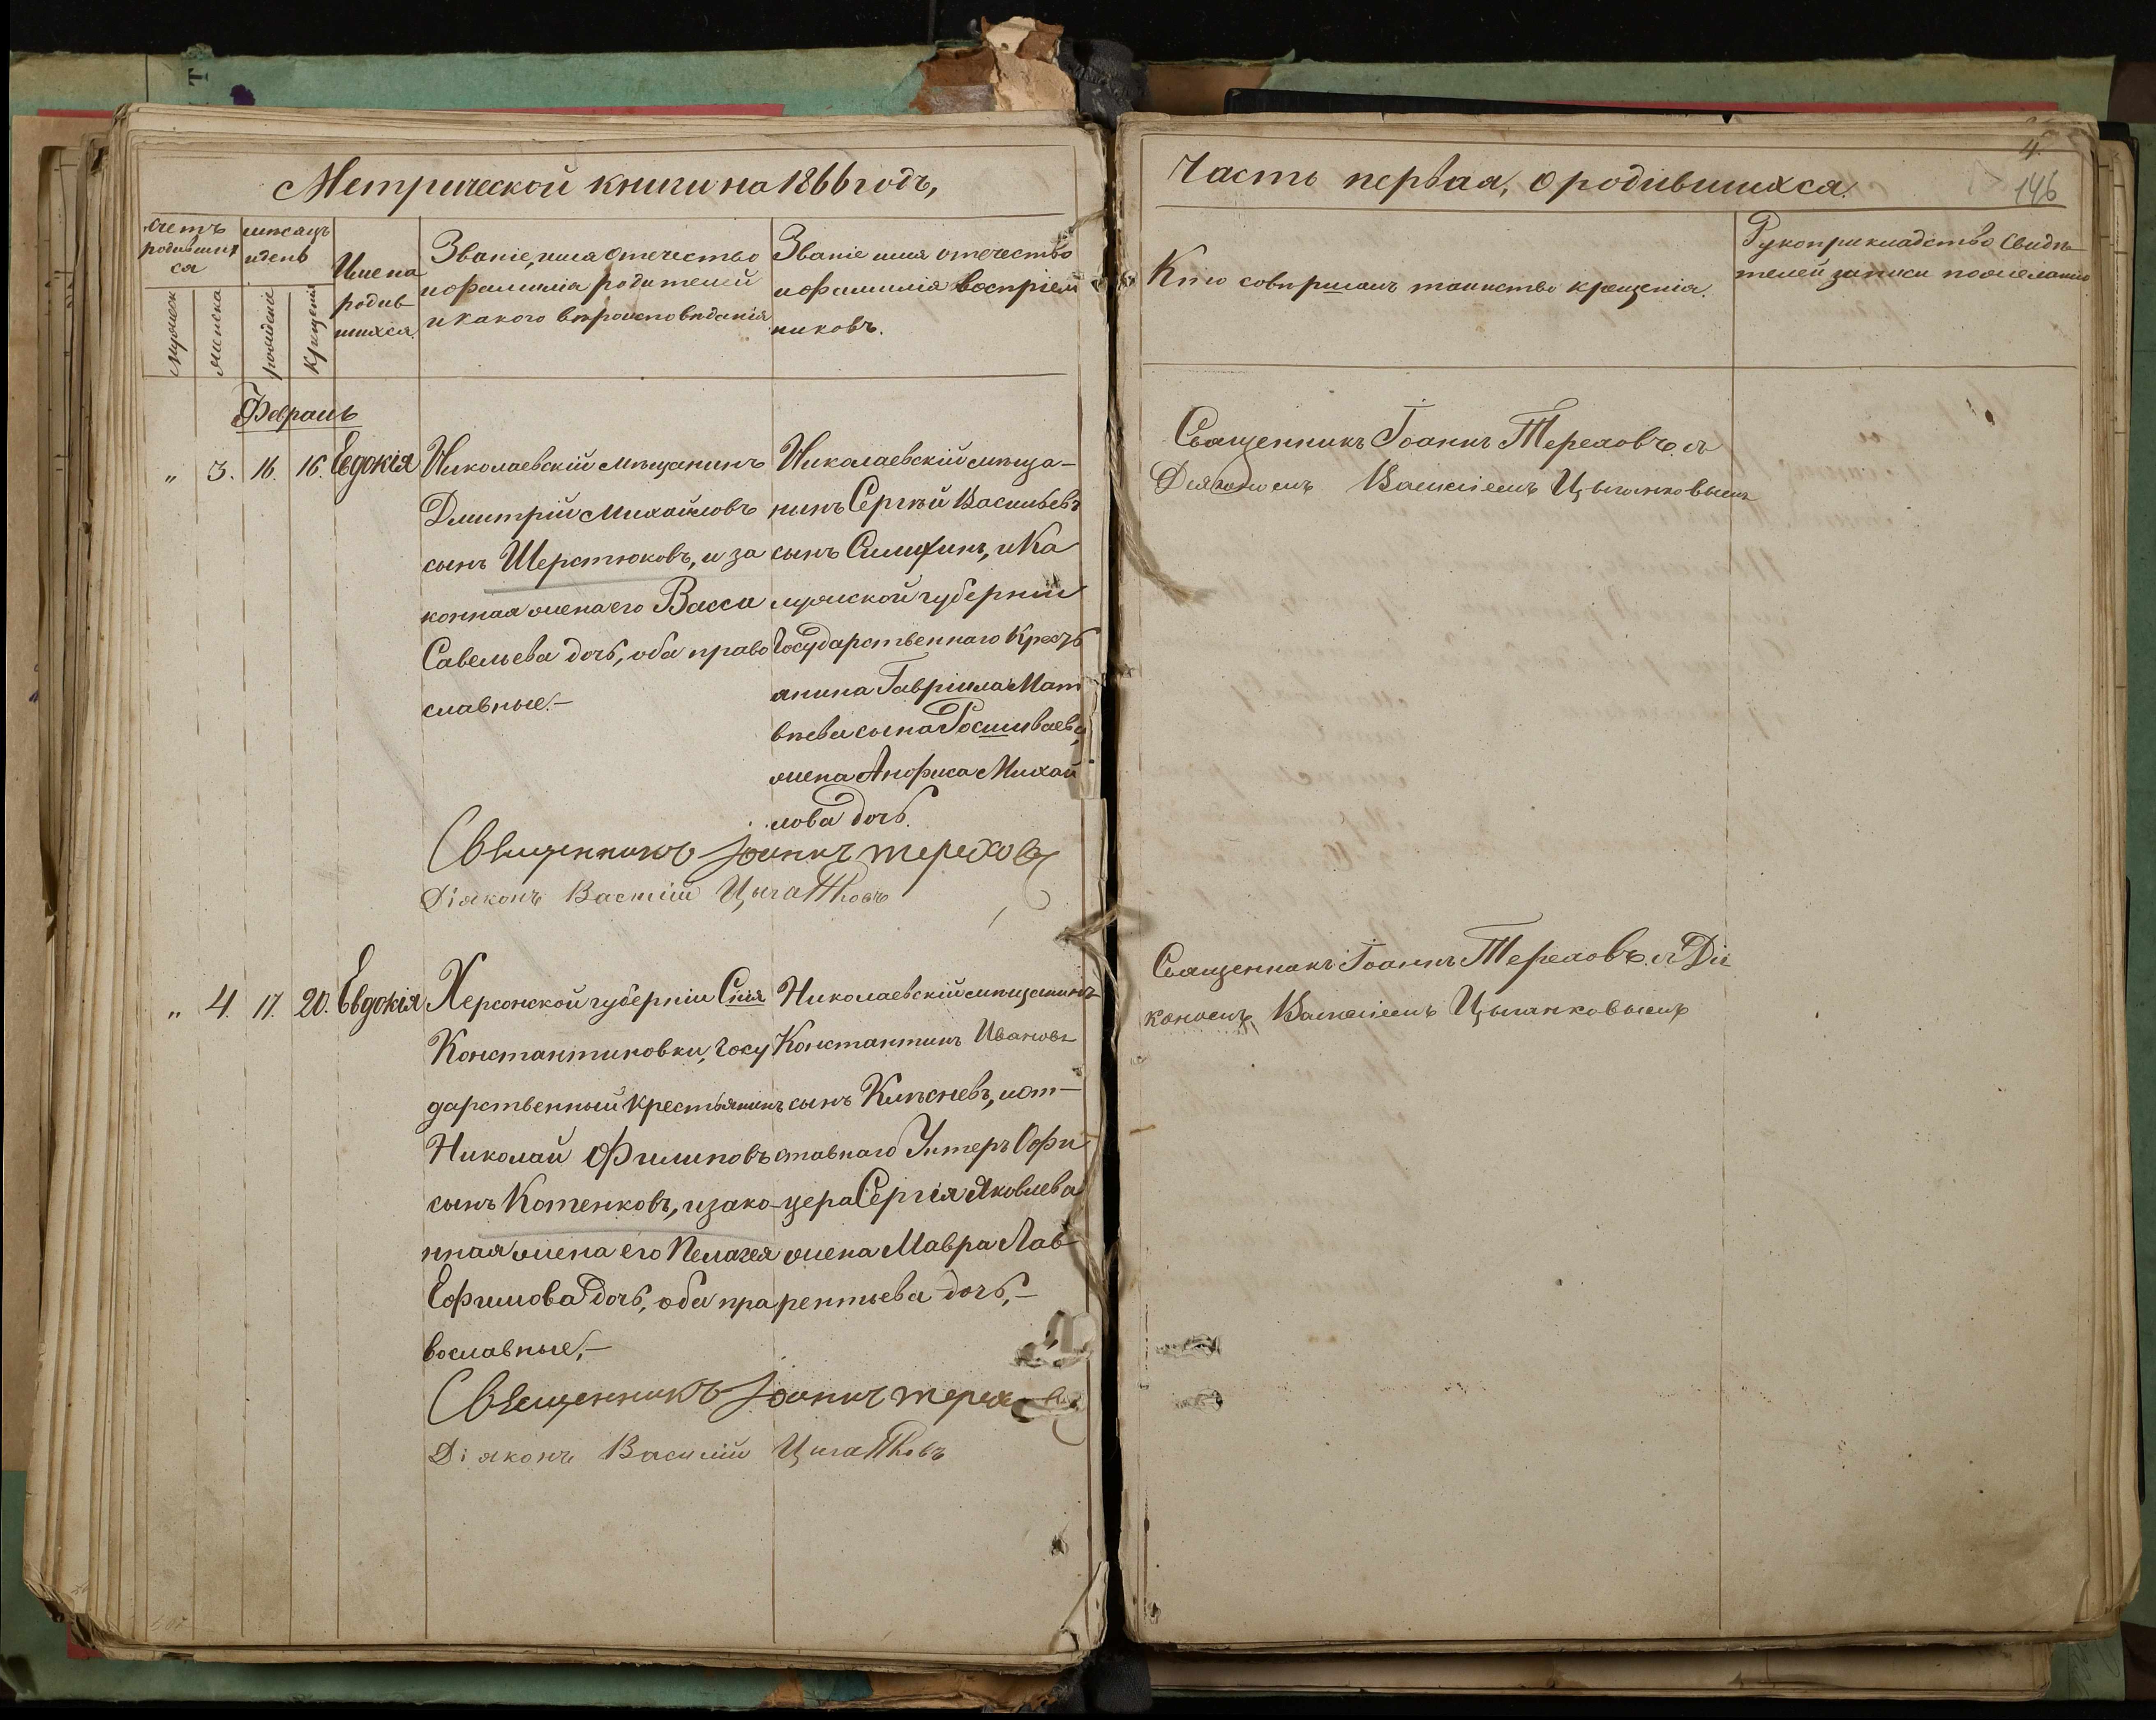 Метрической книги на 1866 годъ,
Часть первая, о родившихся.
4.
146
счетъ родившихся
мѣсяцъ и день
мужеск
женска
рожденія
крещенія
Имена
родив
шихся.
Званіе, имя отечество
и фамилія родителей
и какого вѣроисповѣданія.
Званіе имя отечество
и фамилія воспріем
никовъ.
Кто совершалъ таинство крещенія.
Рукоприкладство свидѣ
телей записи по желанію
Февраль
„ 3. 16. 16. Евдокія
Николаевскій мѣщанинъ
Дмитрій Михайловъ
сынъ Шерстюковъ, и за
конная жена его Васса
Савельева дочь, оба право
славные.–
Николаевскій мѣща–
нинъ Сергѣй Васильевъ
сынъ и Ка
лужской губерніи
Государственнаго Кресть
янина Гавріила Мат
вѣева сына
жена Анфиса Михай
лова дочь.
Священникъ Іоаннъ Тереховъ съ
Діякономъ Василіемъ Цыганковымъ
Священникъ Іоаннъ Тереховъ
Діяконъ Василій Цыганковъ
„ 4. 17. 20. Евдокія
Херсонской губерніи
Константиновки, Госу
дарственный крестьянинъ
Николай Филиповъ
сынъ Котенковъ, и зако–
нная жена его Пелагея
Ефимова дочь, оба пра
вославные,–
Николаевскій мѣщанинъ
Константинъ Ивановъ
сынъ и от–
ставнаго Унтеръ Офи
цера Сергія Яковлева
жена Мавра Лав
рентьева дочь,–
Священникъ Іоаннъ Тереховъ съ Дія
кономъ Василіемъ Цыганковымъ
Священникъ Іоаннъ Тереховъ
Діяконъ Василій Цыганковъ